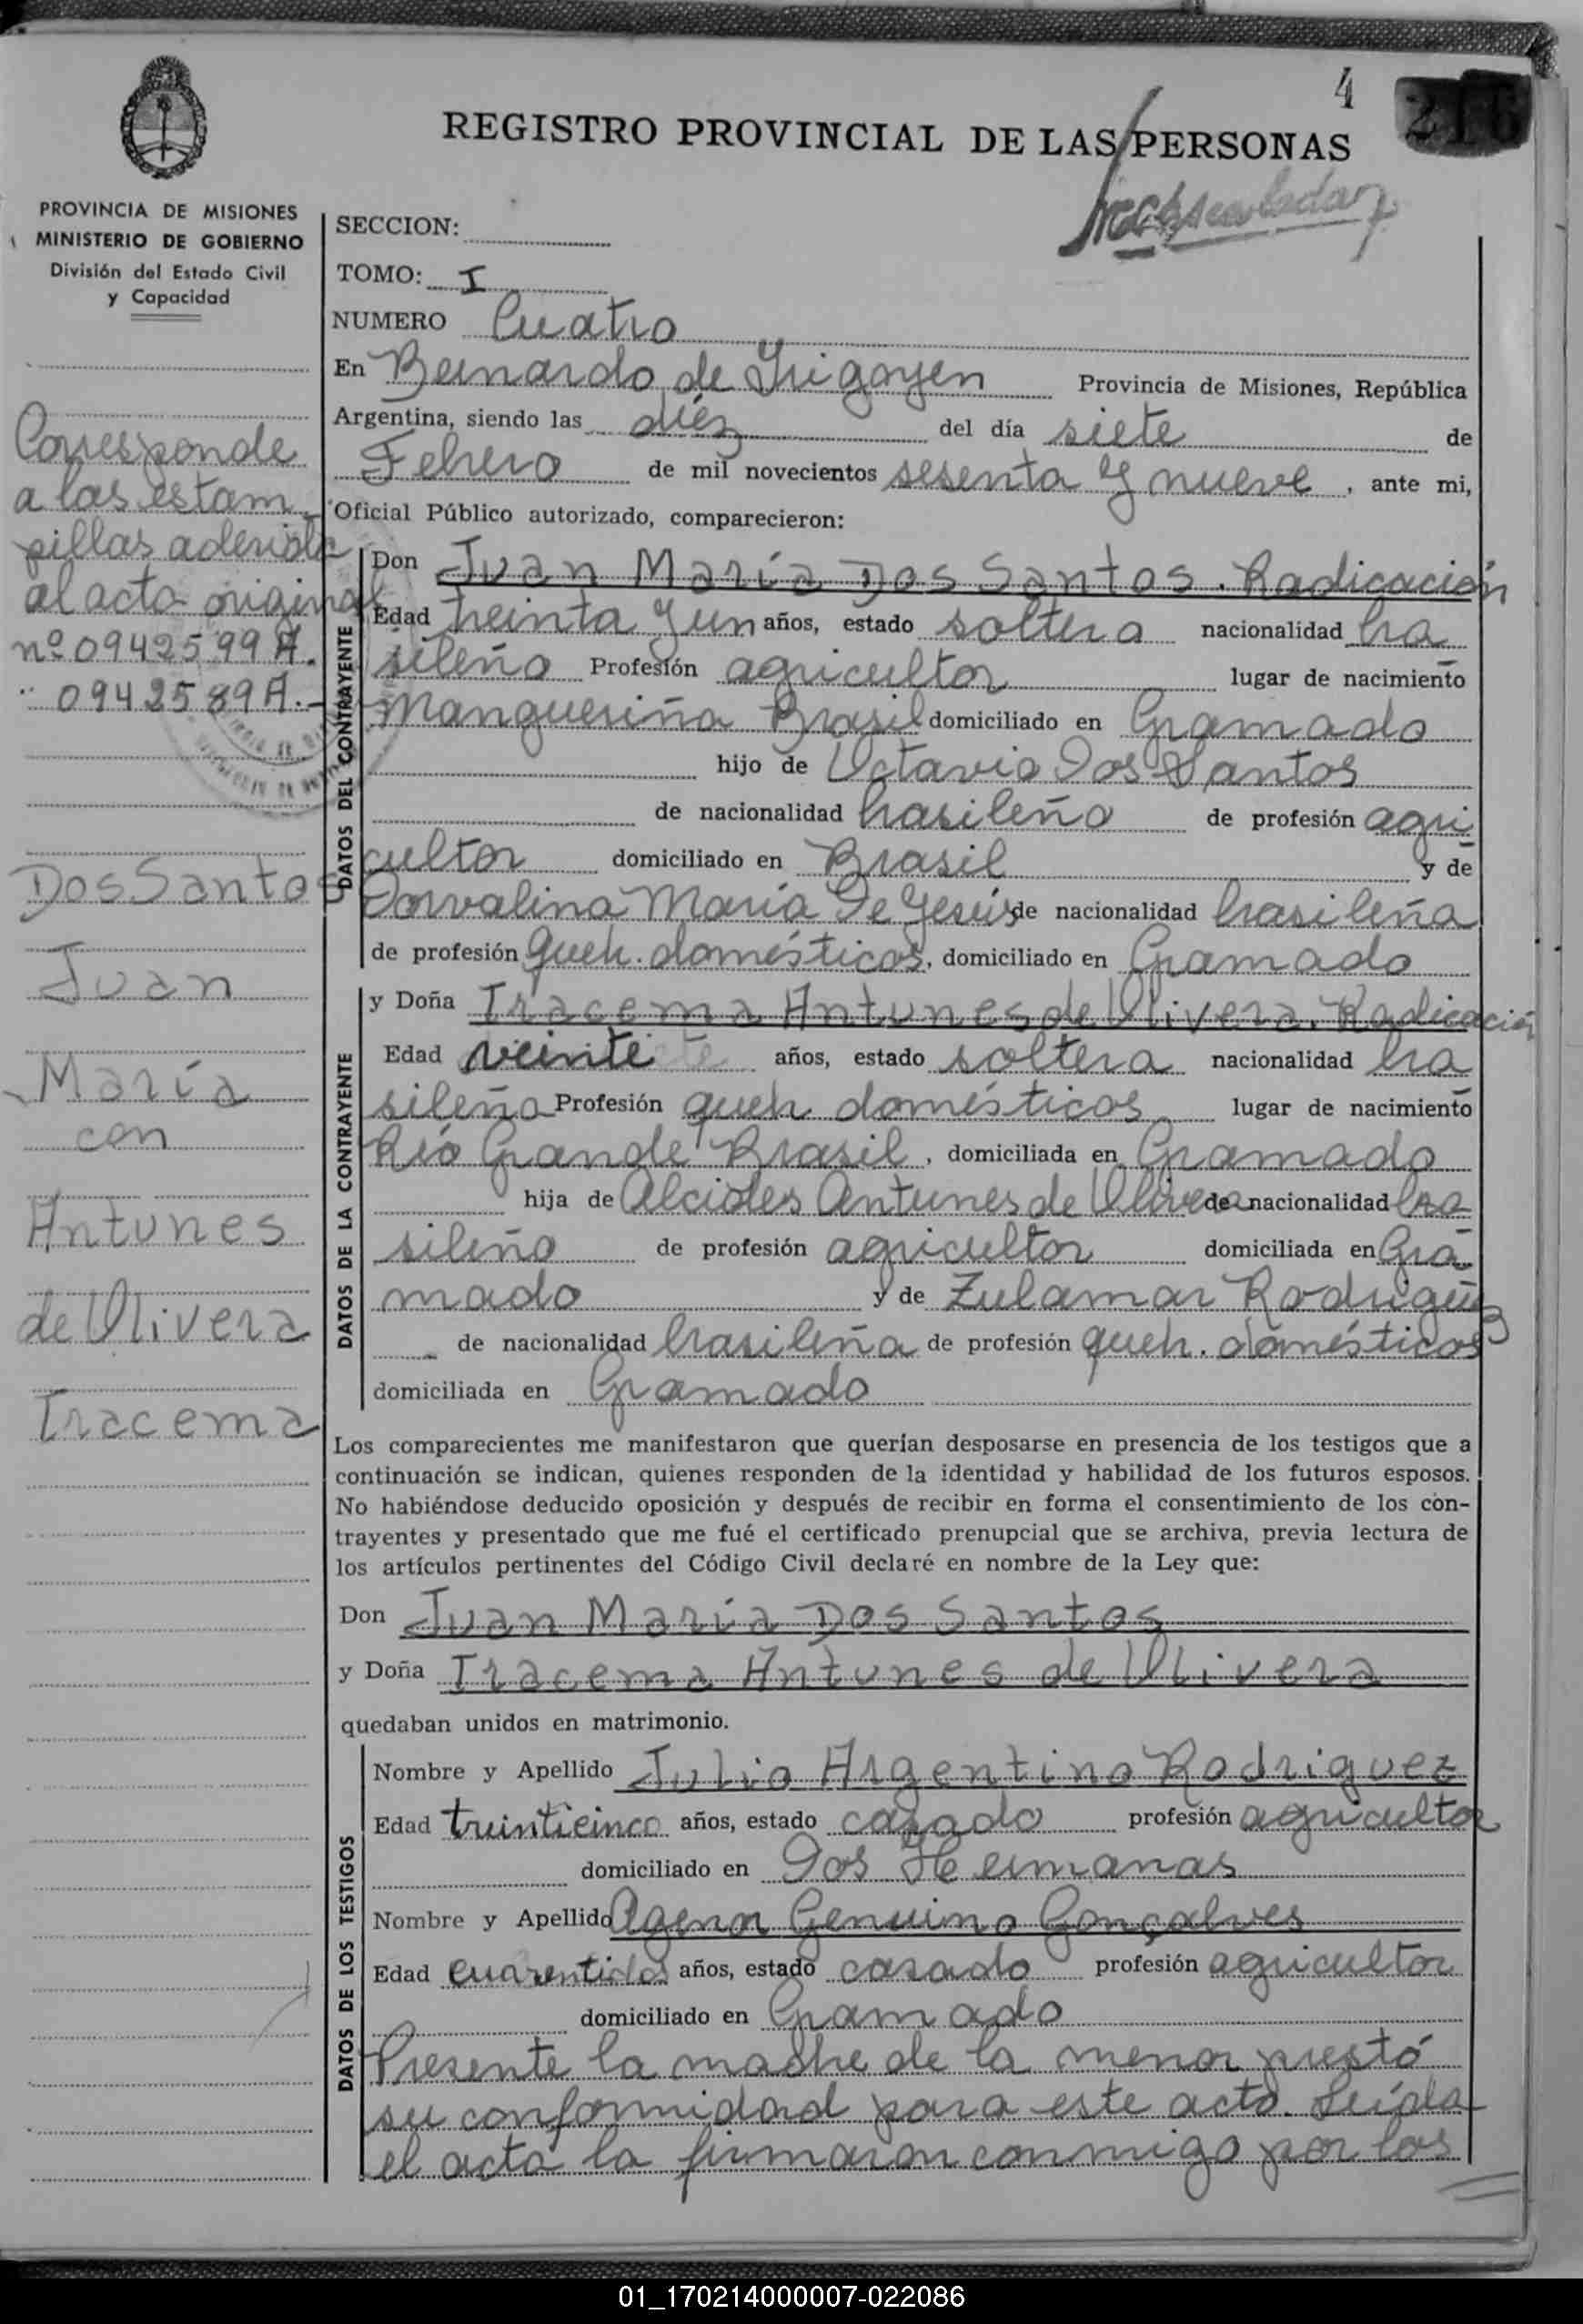 4
216
REGISTRO PROVINCIAL DE LAS PERSONAS
PROVINCIA DE MISIONES
MINISTERIO DE GOBIERNO
División del Estado Civil
y Capacidad
SECCION:
TOMO: I
NUMERO Cuatro
En Bernardo de Irigoyen Provincia de Misiones, República
Argentina, siendo las diéz del día siete de
Febrero de mil novecientos sesenta y nueve, ante mi,
Oficial Público autorizado, comparecieron:
Corresponde
a las estam
pillas aderida
al acta original
nº 0942599 A.
" 0942589 A.-
Dos Santos
Juan
María
con
Antunes
de Olivera
Iracema
DATOS DEL CONTRAYENTE
Don Juan María Dos Santos. Radicación
Edad treinta y un años, estado soltero nacionalidad bra
sileño Profesión agricultor lugar de nacimiento
Mangueriña Brasil domiciliado en Gramado
hijo de Octavio Dos Santos
de nacionalidad brasileño de profesión agri
cultor domiciliado en Brasil y de
Dorvalina María De Jesús de nacionalidad brasileña
de profesión queh. domésticos, domiciliado en Gramado
DATOS DE LA CONTRAYENTE
y Doña Iracema Antunes de Olivera. Radicación
Edad veinte años, estado soltera nacionalidad bra
sileña Profesión queh domésticos lugar de nacimiento
Río Grande Brasil, domiciliada en Gramado
hija de Alcides Antunes de Olivera de nacionalidad bra
sileño de profesión agricultor domiciliada en Gra
mado y de Zulamar Rodriguez
de nacionalidad brasileña de profesión queh. domésticos
domiciliada en Gramado
Los comparecientes me manifestaron que querían desposarse en presencia de los testigos que a
continuación se indican, quienes responden de la identidad y habilidad de los futuros esposos.
No habiéndose deducido oposición y después de recibir en forma el consentimiento de los con-
trayentes y presentado que me fué el certificado prenupcial que se archiva, previa lectura de
los artículos pertinentes del Código Civil declaré en nombre de la Ley que:
Don Juan María Dos Santos
y Doña Iracema Antunes de Olivera
quedaban unidos en matrimonio.
DATOS DE LOS TESTIGOS
Nombre y Apellido Julio Argentino Rodriguez
Edad treinticinco años, estado casado profesión agricultor
domiciliado en Dos Hermanas
Nombre y Apellido Agenor Genuino Gonçalves
Edad cuarentidos años, estado casado profesión agricultor
domiciliado en Gramado
Presente la madre de la menor prestó
su conformidad para este acto. Leída
el acta la firmaron conmigo por los
01_170214000007-022086